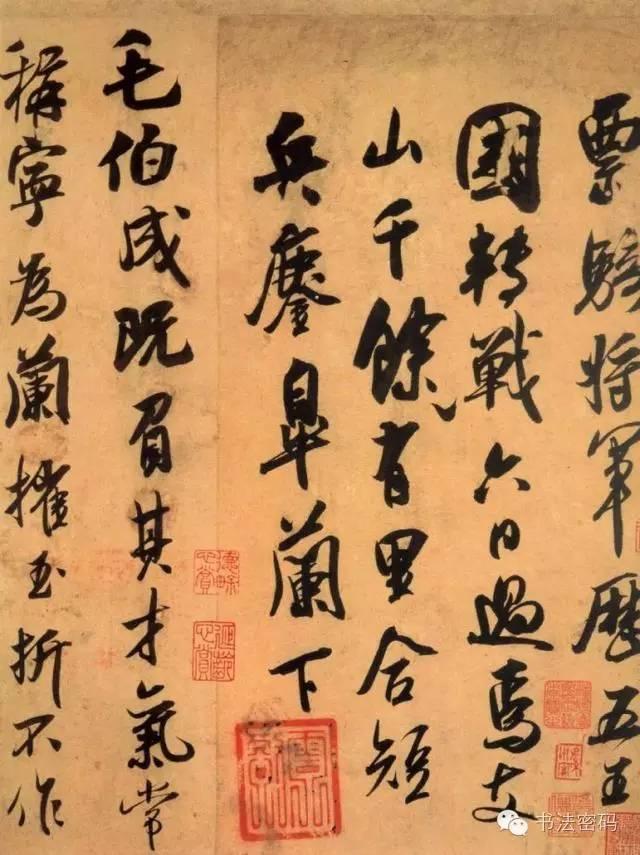 票騎将軍歴五王
國轉戰六日過焉支
山千餘有里合短
兵鏖皐蘭下
毛伯成既負其才氣常
稱寧為蘭摧玉折不作
书法密码